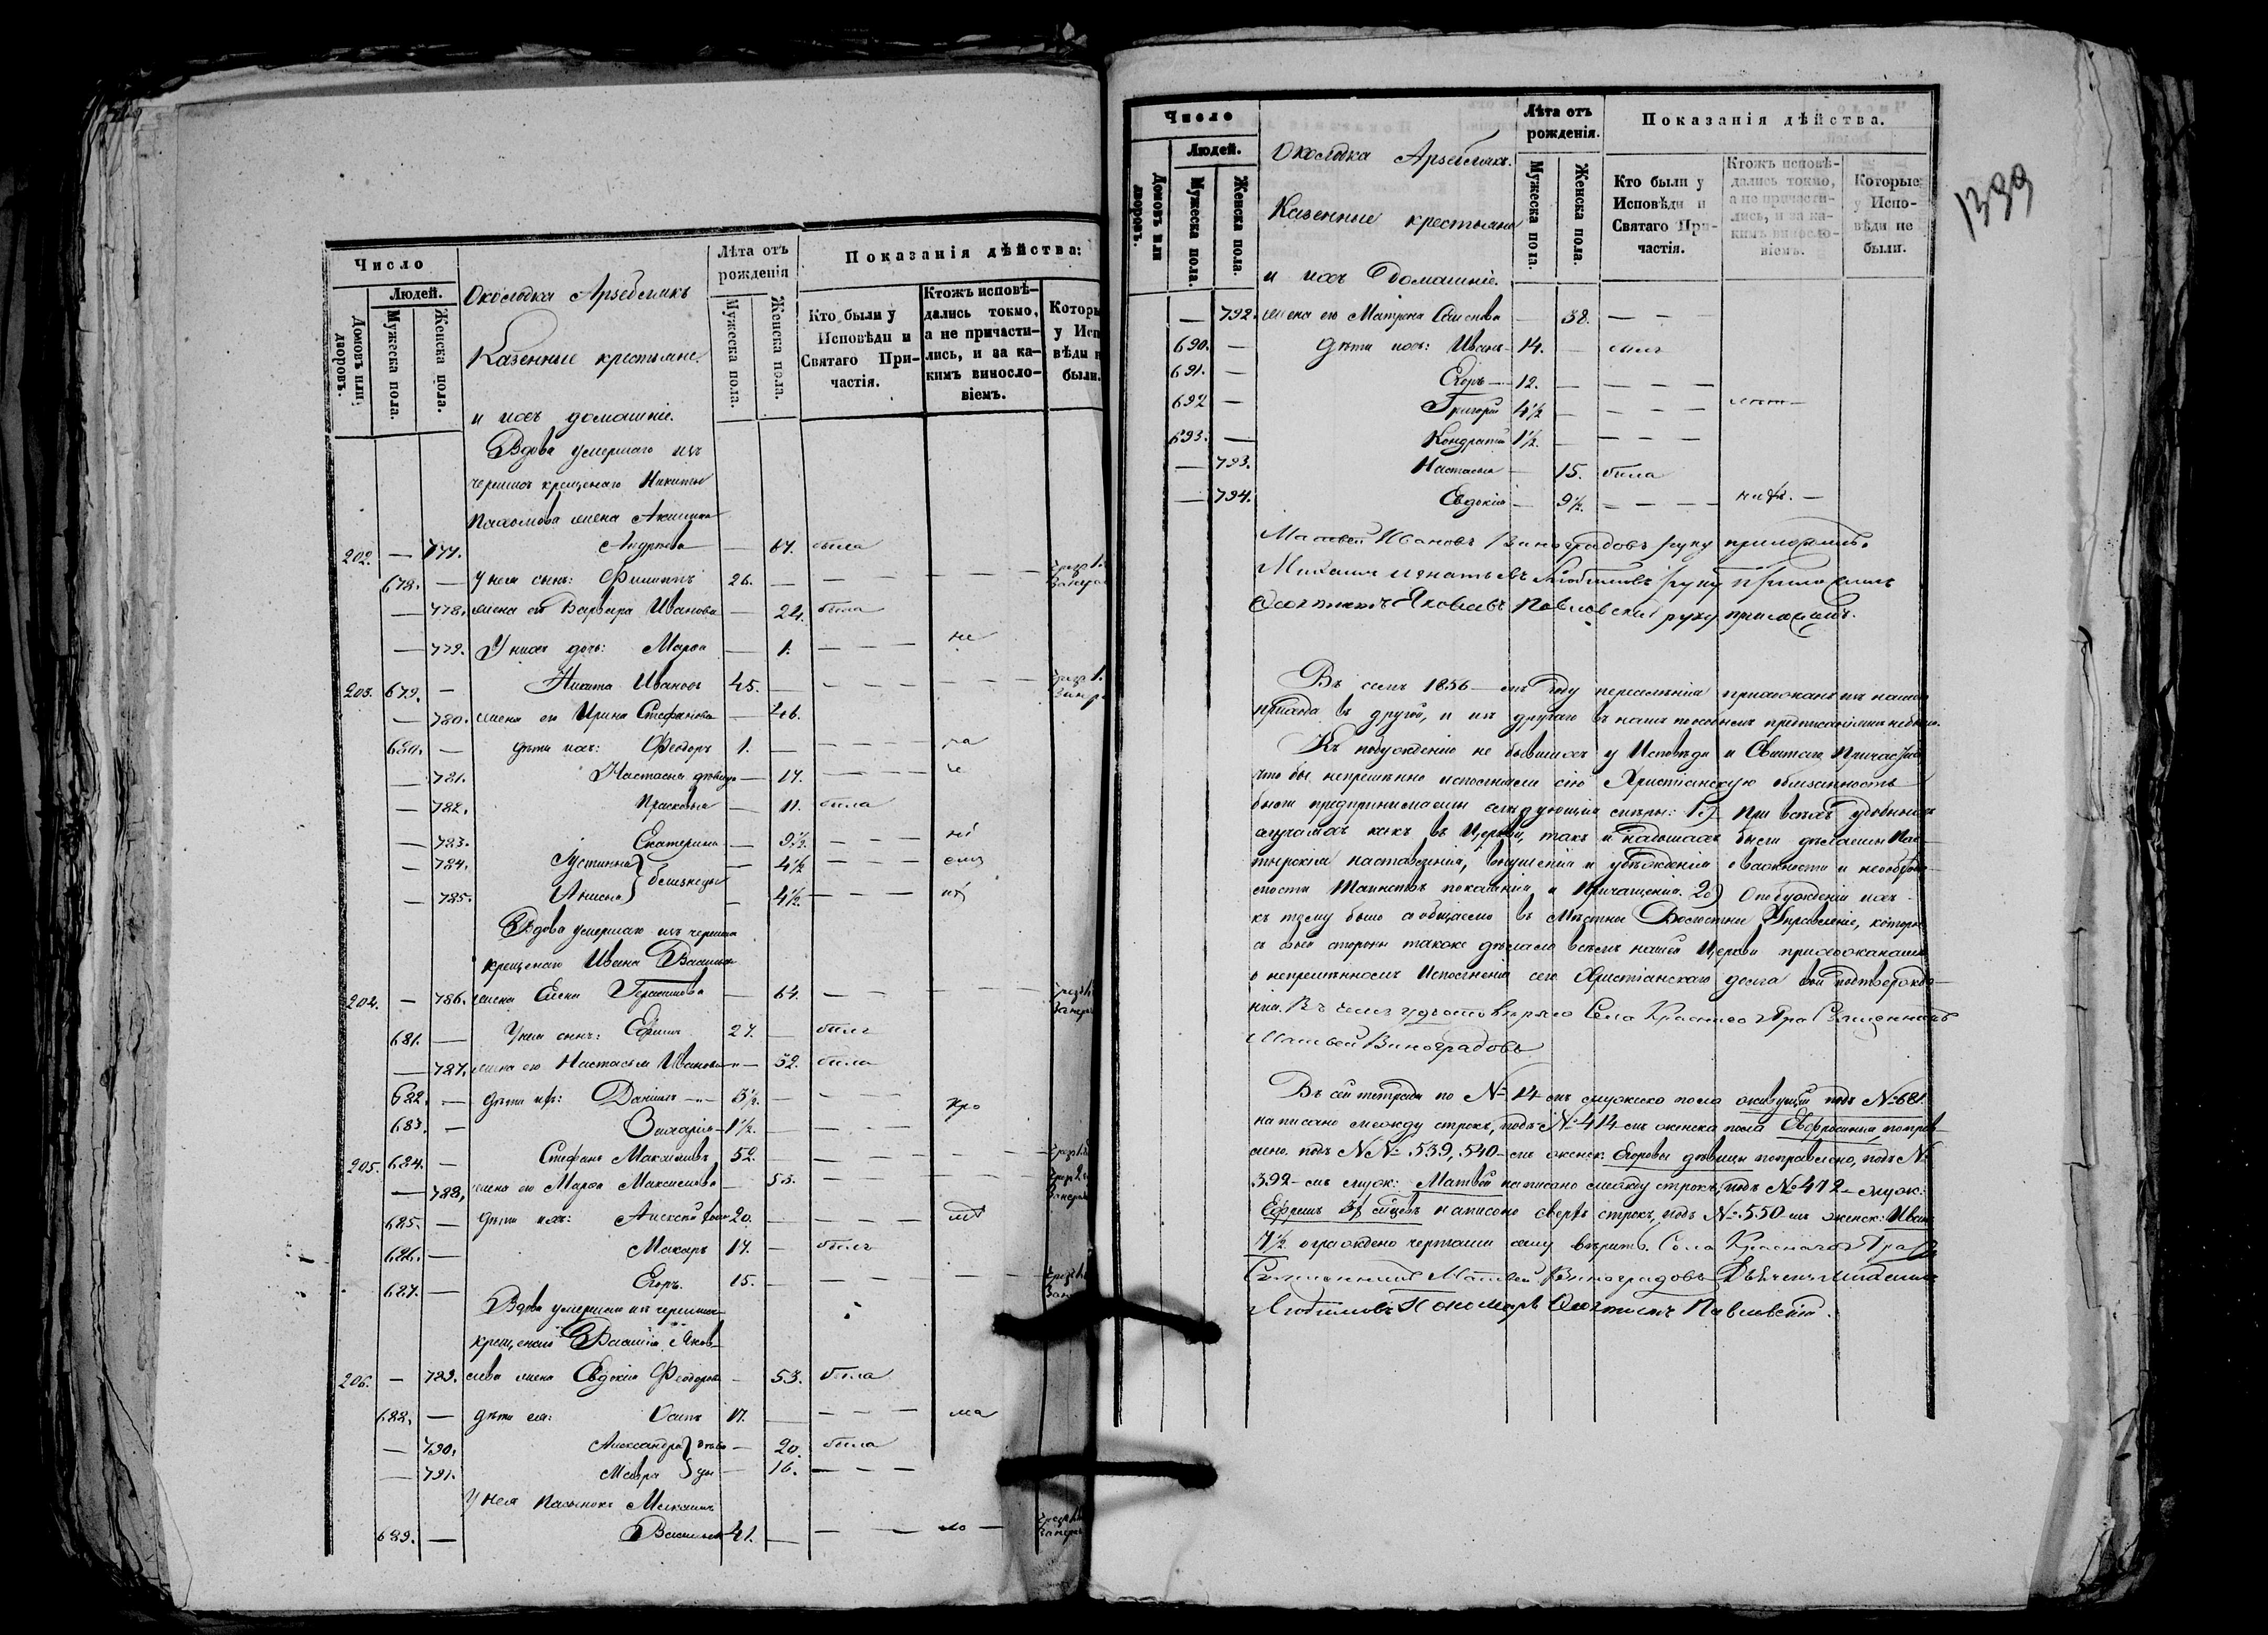 Число
Людей.
Домовъ или дворовъ.
Мужеска пола.
Женска пола.
Околодка Арзебелякъ
Казенные крестьяне
и ихъ домашніе.
Лѣта отъ рожденія
Мужеска пола.
Женска пола.
Показанія дѣйства:
Кто были у Исповѣди и Святаго Причастія.
Ктожъ исповѣдались токмо, а не причастились, и за какимъ винословіемъ.
Которы у Исп вѣди н были.
Вдова умершаго изъ
черемисъ крещенаго Никиты
Пахомова жена Акилина
202. — 777. Андреева — 67. была
678. — У нея сынъ: Филиппъ 26. — — — —
— 778. жена его Варвара Иванова — 24. была
— 779. У нихъ дочь: Марѳа — 1. — — — не
203. 679. — Никита Ивановъ 45. — — — —
— 780. жена его Ирина Стефанова — 46.
680. — дѣти ихъ: Ѳеодоръ 1. — — — — ма
— 781. Настасья дѣвица — 17. — — —
— 782. Прасковья — 11. была
— 783. Екатерина — 9½. — — —
— 784. Іустинья — 4½ — — —
близнецы
— 785. Анисья — 4½. — — —
Вдова умершаго изъ черемисъ
крещенаго Ивана Васильева
204. — 786. жена Елена Герасимова — 64. — — —
681. — У нея сынъ: Ефимъ 27. — былъ
— 787. жена его Настасья Иванова — 52. была
682. — дѣти ихъ: Даніилъ 3½. — — — —
683. — Захарій 1½. — — — —
205. 684. — Стефанъ Максимовъ 52. — — — —
— 788. жена его Марѳа Максимова — 55. — — —
685. — дѣти ихъ: Алексѣй 20. — — — —
686. — Макаръ 17. — былъ
687. — Егоръ. 15. — — — —
Вдова умершаго изъ черемисъ
крещенаго Василія Яков-
206. — 789. лева жена Евдокія Ѳеодорова — 53. была
688. — дѣти ея: Осипъ 17. — — — — ма
— 790. Александра — 20. была
дѣвицы
— 791. Мавра — 16. — — —
У нея пасынокъ Михаилъ
689. — Васильевъ 41. — — — ло —
1399
Число
Людей.
Домовъ или дворовъ.
Мужеска пола.
Женска пола.
Околодка Арзебелякъ.
Казенные крестьяне
и ихъ домашніе.
Лѣта отъ рожденія.
Мужеска пола.
Женска пола.
Показанія дѣйства.
Кто были у Исповѣди и Святаго Причастія.
Ктожъ исповѣдались токмо, а не причастились, и за какимъ винословіемъ.
Которые у Исповѣди не были.
— 792. жена его Матрена Семенова — 38. — — —
690. — дѣти ихъ: Иванъ 14. — былъ
691. — Егоръ 12. — — — —
692 — Григорій 4½ — — — —
693. — Кондратій 1½. — — — —
— 793. Настасья — 15. была
— 794. Евдокія — 9½. — — — —
Матвей Ивановъ Виноградовъ руку приложилъ.
Михаилъ Игнатьевъ Любимовъ руку приложилъ
Ѳеоктистъ Яковлевъ Павловскій руку приложилъ.
Въ семъ 1856-мъ году переселенія прихожанъ изъ нашего
прихода въ другой, и изъ другаго въ нашъ по новымъ предписаніямъ не было.
Къ побужденію не бывшихъ у Исповѣди и Святаго Причастія
что бы непремѣнно исполняли сію Христіанскую обязанность
были предпринимаемы слѣдующія мѣры: 1е) При всѣхъ удобныхъ
случаяхъ какъ въ Церкви, такъ и въ домахъ были дѣлаемы Пас-
тырскія наставленія, внушенія и убѣжденія о важности и необходи-
мости Таинствъ покаянія и Причащенія. 2е) О побужденіи ихъ
къ тому было сообщаемо въ Мѣстные Волостные Управленіе, которые
съ своей стороны также дѣлали всѣмъ нашей Церкви прихожанамъ
о непремѣнномъ Исполненіи сего Христіанскаго долга свои подтвержде-
нія. Въ чемъ удостовѣряю Села Краснаго Яра Священникъ
Матвей Виноградовъ
Въ сей тетради по № 14-мъ мужеска пола живущій подъ № 681.
написано между строкъ, подъ № 414-мъ женска пола Евфросинія, поправ-
лено. подъ №№ 539, 540-мъ женск. Егоровы дѣвицы поправлено, подъ №
392-мъ муж: Матвей написано между строкъ, подъ № 472-мъ муж:
Ефремъ написано сверхъ строкъ, подъ № 550-мъ женск: Иван
7½ ограждено чертами сему вѣрить. Села Краснаго Яра
Священникъ Матвей Виноградовъ Дьячекъ Михаилъ
Любимовъ Пономарь Ѳеоктистъ Павловскій.